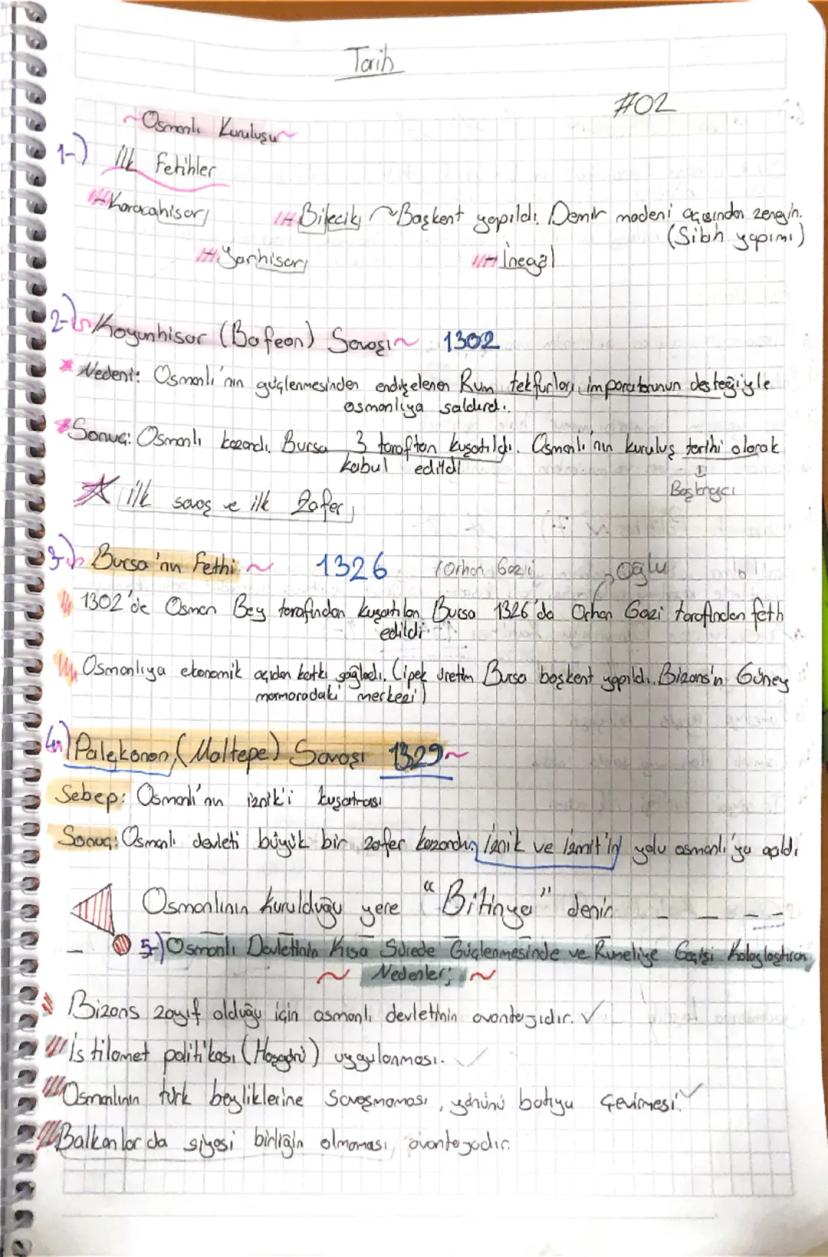 Tarih
#02
~Osmanlı Kuruluşu~
1-) İlk Fetihler
Karacahisar
Bilecik ~Başkent yapıldı. Demir madeni açısından zengin.
(Silah yapımı)
Yarhisar
İnegöl
2-) Koyunhisar (Bafeon) Savaşı~ 1302
* Nedeni: Osmanlı'nın güçlenmesinden endişelenen Rum tekfurları, imparatorunun desteğiyle
osmanlıya saldırdı.
* Sonuç: Osmanlı kazandı. Bursa 3 taraftan kuşatıldı. Osmanlı'nın kuruluş tarihi olarak
kabul edildi
Başlangıcı
İlk savaş ve ilk Zafer
3-) Bursa'nın Fethi ~ 1326 (Orhan Gazi
oğlu
1302'de Osman Bey tarafından kuşatılan Bursa 1326'da Orhan Gazi tarafından feth
edildi.
Osmanlıya ekonomik açıdan katkı sağladı. (ipek üretim Bursa başkent yapıldı. Bizans'ın Güney
marmaradaki merkezi)
4-) Palekanon, (Maltepe) Savaşı 1329~
Sebep: Osmanlı'nın iznik'i kuşatması
Sonuç: Osmanlı devleti büyük bir zafer kazandı, İznik ve İzmit'in yolu osmanlı'ya açıldı
Osmanlının kurulduğu yere "Bitinya" denir
5-) Osmanlı Devletinin Kısa Sürede Güçlenmesinde ve Rumeliye Geçişi Kolaylaştıran
~ Nedenler; ~
Bizans zayıf olduğu için osmanlı devletinin avantajıdır. ✓
İstilamet politikası (Hoşgörü) uygulanması. ✓
Osmanlının türk beyliklerine savaşmaması, yönünü batıya çevirmesi. ✓
Balkanlarda siyasi birliğin olmaması, avantajadır.